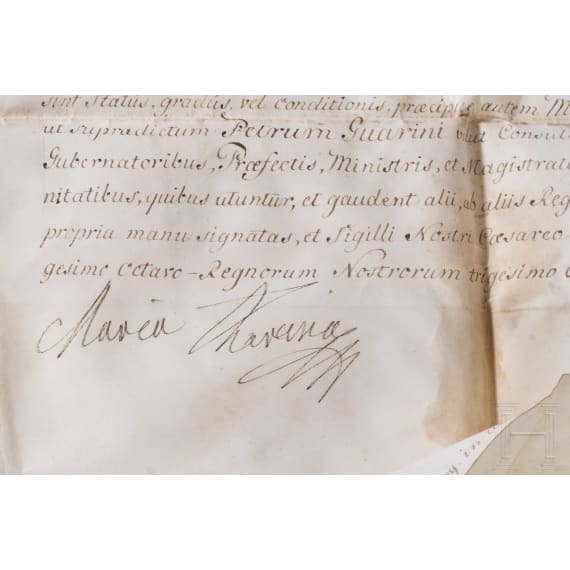 sint status, gradus, vel conditionis, præcipue autem M
ut supradictum Petrum Guarini velut Consul
Gubernatoribus, Præfectis, Ministris, et Magistrati
nitatibus, quibus utuntur, et gaudent alii, ab aliis Reg
propria manu signatas, et Sigilli Nostri Cæsareo-
gesimo octavo-Regnorum Nostrorum trigesimo
Maria Theresia
H